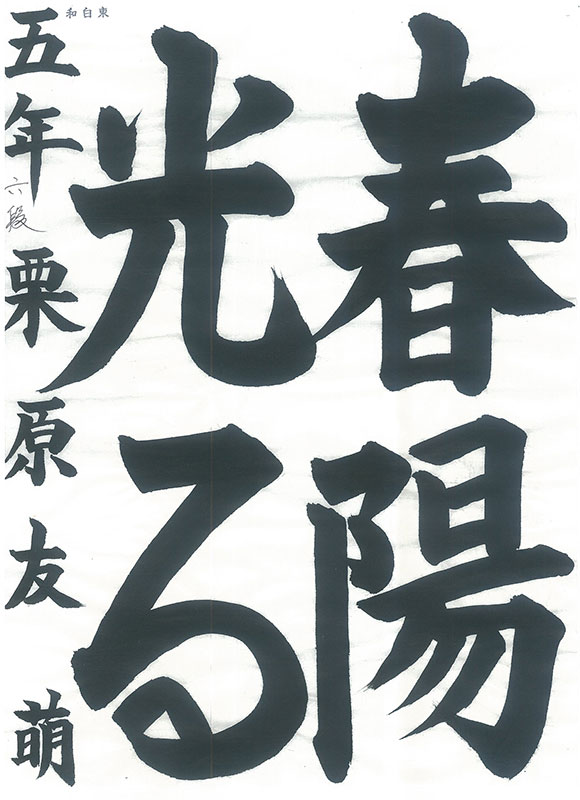 春陽
光る
五年 六段 栗原友萌
東白和